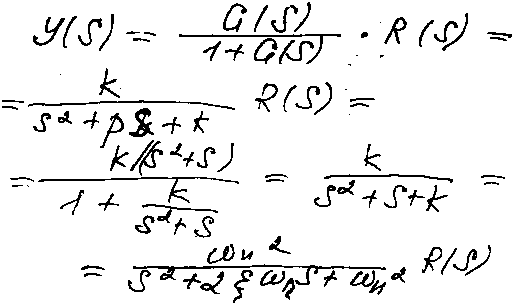 Y(S) = G(S) / 1 + G(S) · R(S) =
= K / s² + ps + k R(S) =
= K/(s²+s) / 1 + K / s²+s = K / s²+s+k =
= ωn² / s² + 2ξωns + ωn² R(S)